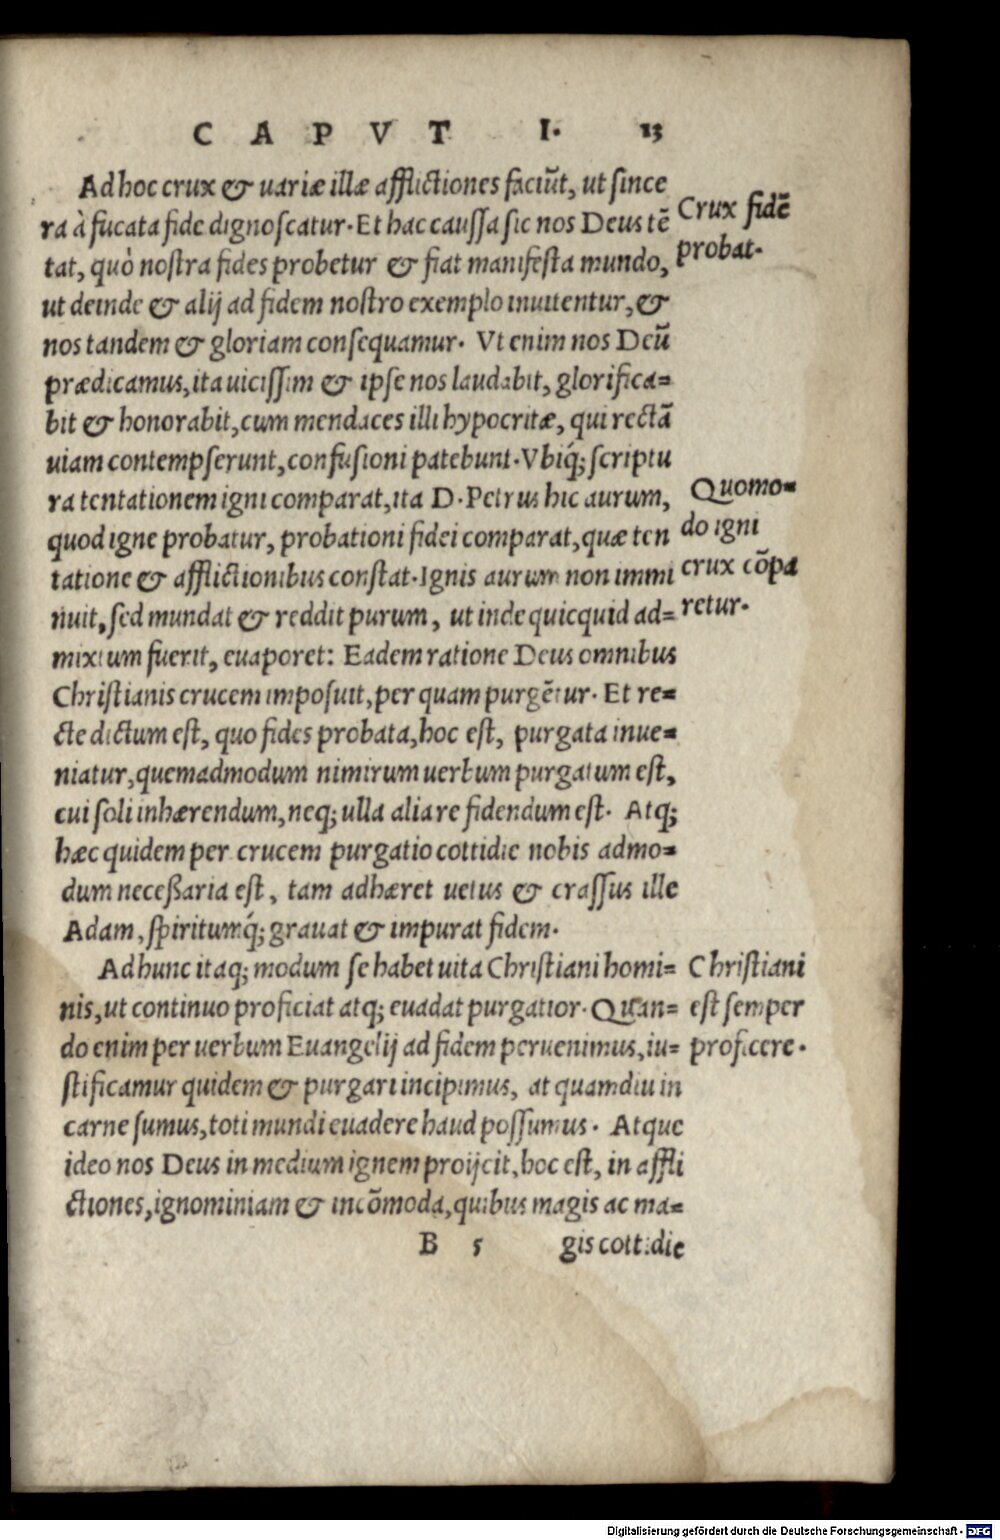 CAPVT I. 13
Ad hoc crux & uariæ illæ afflictiones faciũt, ut since
ra à fucata fide dignoscatur. Et hac caussa sic nos Deus tẽ
tat, quò nostra fides probetur & fiat manifesta mundo,
ut deinde & alij ad fidem nostro exemplo inuitentur, &
nos tandem & gloriam consequamur. Vt enim nos Deũ
prædicamus, ita uicissim & ipse nos laudabit, glorifica=
bit & honorabit, cum mendaces illi hypocritæ, qui rectã
uiam contempserunt, confusioni patebunt. Vbiq́; scriptu
ra tentationem igni comparat, ita D. Petrus hic aurum,
quod igne probatur, probationi fidei comparat, quæ ten
tatione & afflictionibus constat. Ignis aurum non immi
nuit, sed mundat & reddit purum, ut inde quicquid ad=
mixtum fuerit, euaporet: Eadem ratione Deus omnibus
Christianis crucem imposuit, per quam purgẽtur. Et re=
cte dictum est, quo fides probata, hoc est, purgata inue=
niatur, quemadmodum nimirum uerbum purgatum est,
cui soli inhærendum, neq; ulla alia re fidendum est. Atq;
hæc quidem per crucem purgatio cottidie nobis admo=
dum necessaria est, tam adhæret uetus & crassus ille
Adam, spiritumq́; grauat & impurat fidem.
Ad hunc itaq; modum se habet uita Christiani homi=
nis, ut continuo proficiat atq; euadat purgatior. Quan=
do enim per uerbum Euangelij ad fidem peruenimus, iu=
stificamur quidem & purgari incipimus, at quamdiu in
carne sumus, toti mundi euadere haud possumus. Atque
ideo nos Deus in medium ignem proijcit, hoc est, in affli
ctiones, ignominiam & incõmoda, quibus magis ac ma=
B 5 gis cottidie
Crux fidẽ
probat.
Quomo=
do igni
crux cõpa
retur.
Christiani
est semper
proficere.
Digitalisierung gefördert durch die Deutsche Forschungsgemeinschaft - DFG